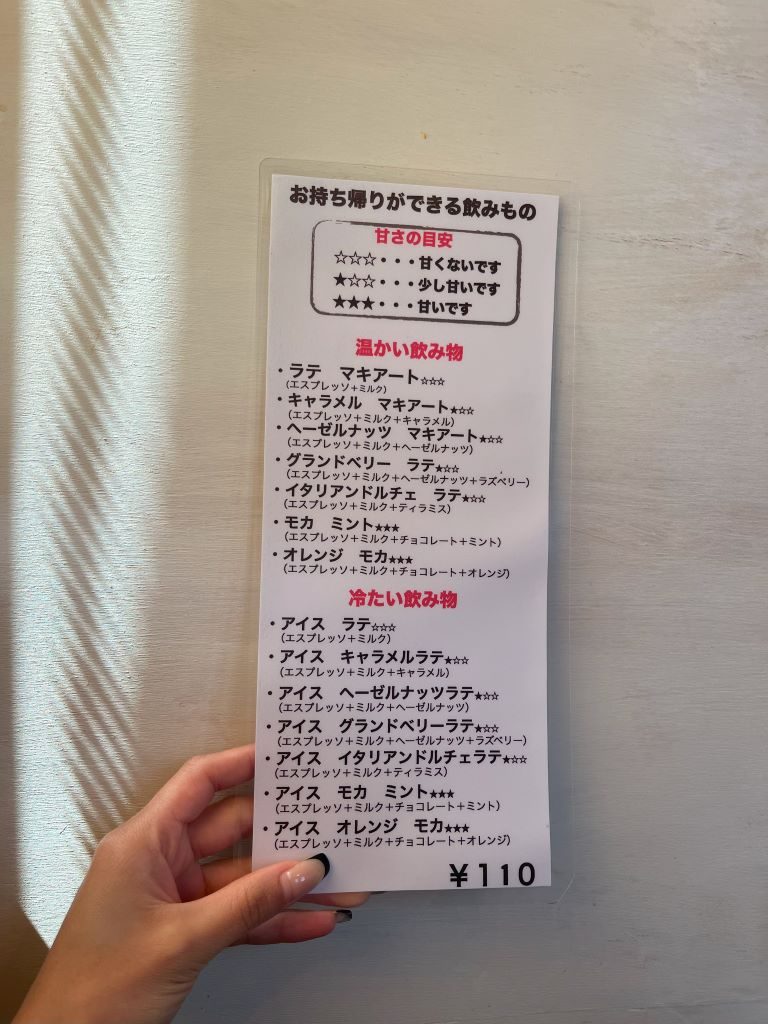 お持ち帰りができる飲みもの
甘さの目安
☆☆☆・・・甘くないです
★☆☆・・・少し甘いです
★★★・・・甘いです
温かい飲み物
・ラテ　マキアート☆☆☆
(エスプレッソ+ミルク)
・キャラメル　マキアート★☆☆
(エスプレッソ+ミルク+キャラメル)
・ヘーゼルナッツ　マキアート★☆☆
(エスプレッソ+ミルク+ヘーゼルナッツ)
・グランドベリー　ラテ★☆☆
(エスプレッソ+ミルク+ヘーゼルナッツ+ラズベリー)
・イタリアンドルチェ　ラテ★☆☆
(エスプレッソ+ミルク+ティラミス)
・モカ　ミント★★★
(エスプレッソ+ミルク+チョコレート+ミント)
・オレンジ　モカ★★★
(エスプレッソ+ミルク+チョコレート+オレンジ)
冷たい飲み物
・アイス　ラテ☆☆☆
(エスプレッソ+ミルク)
・アイス　キャラメルラテ★☆☆
(エスプレッソ+ミルク+キャラメル)
・アイス　ヘーゼルナッツラテ★☆☆
(エスプレッソ+ミルク+ヘーゼルナッツ)
・アイス　グランドベリーラテ★☆☆
(エスプレッソ+ミルク+ヘーゼルナッツ+ラズベリー)
・アイス　イタリアンドルチェラテ★☆☆
(エスプレッソ+ミルク+ティラミス)
・アイス　モカ　ミント★★★
(エスプレッソ+ミルク+チョコレート+ミント)
・アイス　オレンジ　モカ★★★
(エスプレッソ+ミルク+チョコレート+オレンジ)
￥110